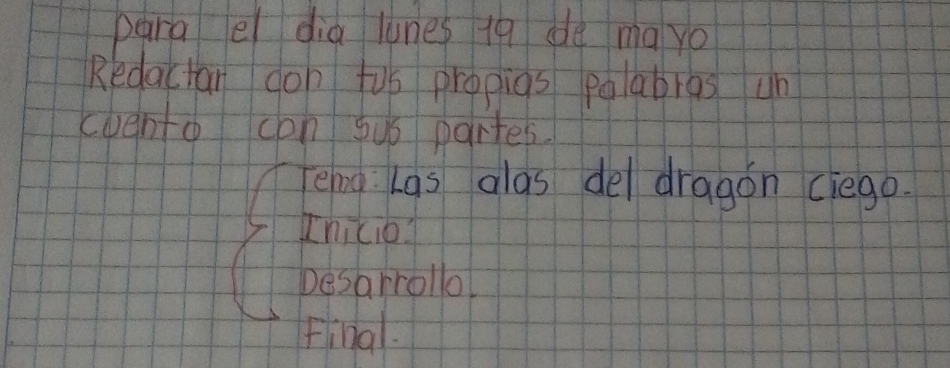 para el dia lunes 19 de mayo
Redactar con tus propias palabras un
cuento con sus partes.
Tema: Las alas del dragón ciego.
Inicio:
Desarrollo.
Final.